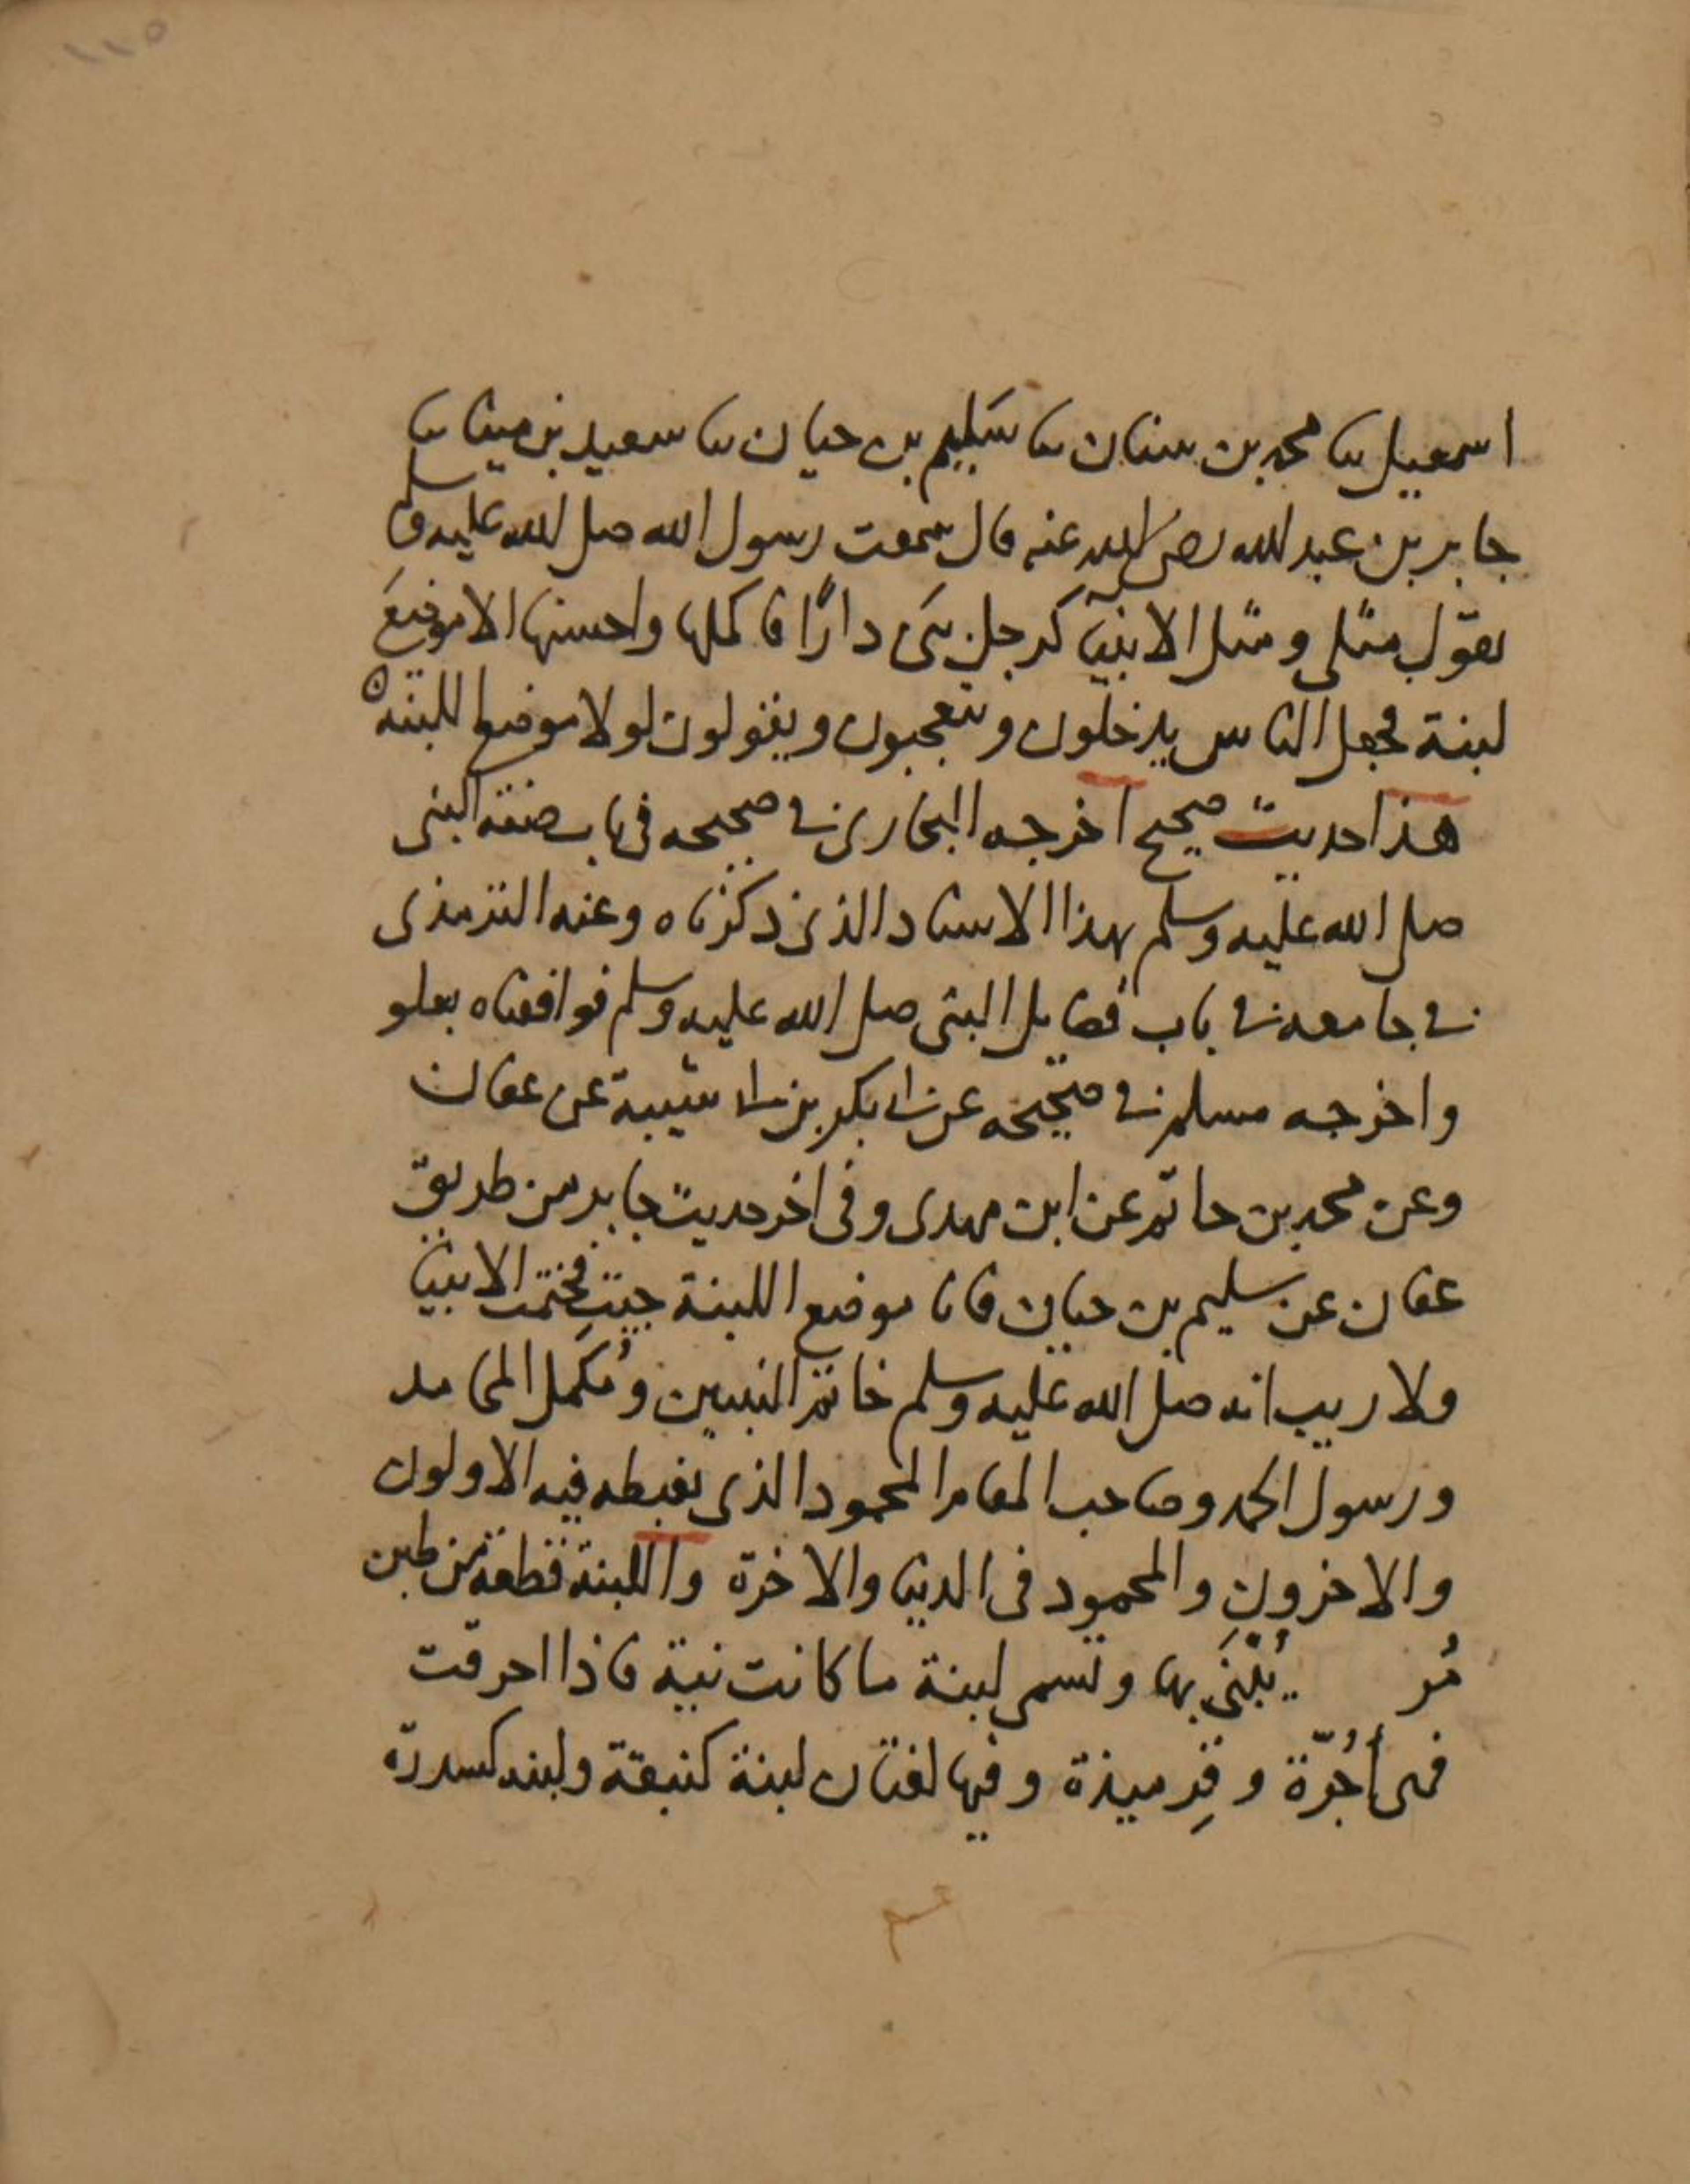 ١١٥
اسمعيل ثنا محمد بن سنان ثنا سَليم بن حيان ثنا سعيد بن مينا ثنا
جابر بن عبد الله رضي الله عنه قال سمعت رسول الله صلى الله عليه وسلم
يقول مثلى ومثل الانبيآ كرجل بنى دارًا فاكملها واحسنها الا موضعَ
لبنة فجعل الناس يدخلون ويتعجبون ويقولون لولا موضع اللبنة ه
هذا حديث صحيح اخرجه البخارى فى صحيحه فى باب صفة النبى
صلى الله عليه وسلم بهذا الاسناد الذى ذكرناه وعنه الترمذى
فى جامعه فى باب فضايل النبى صلى الله عليه وسلم فوافقناه بعلو
واخرجه مسلم فى صحيحه عن ابى بكر بن ابى شيبة عن عفان
وعن محمد بن حاتم عن ابن مهدى وفى اخر حديث جابر من طريق
عفان عن سليم بن حيان فانا موضع اللبنة جيت فختمت الانبيا
ولا ريب انه صلى الله عليه وسلم خاتم النبيين ومُكَمل المحامد
ورسول الحمد وصاحب المقام المحمود الذى يغبطه فيه الاولون
والاخرون والمحمود فى الدنيا والاخرة واللبنة قطعة من طين
يُبْنَى بها وتسمى لبنة ما كانت نية فاذا احرقت
فهى أجُرّة وقِرميذة وفيها لغتان لبنة كنبقة ولبنه كسدرة